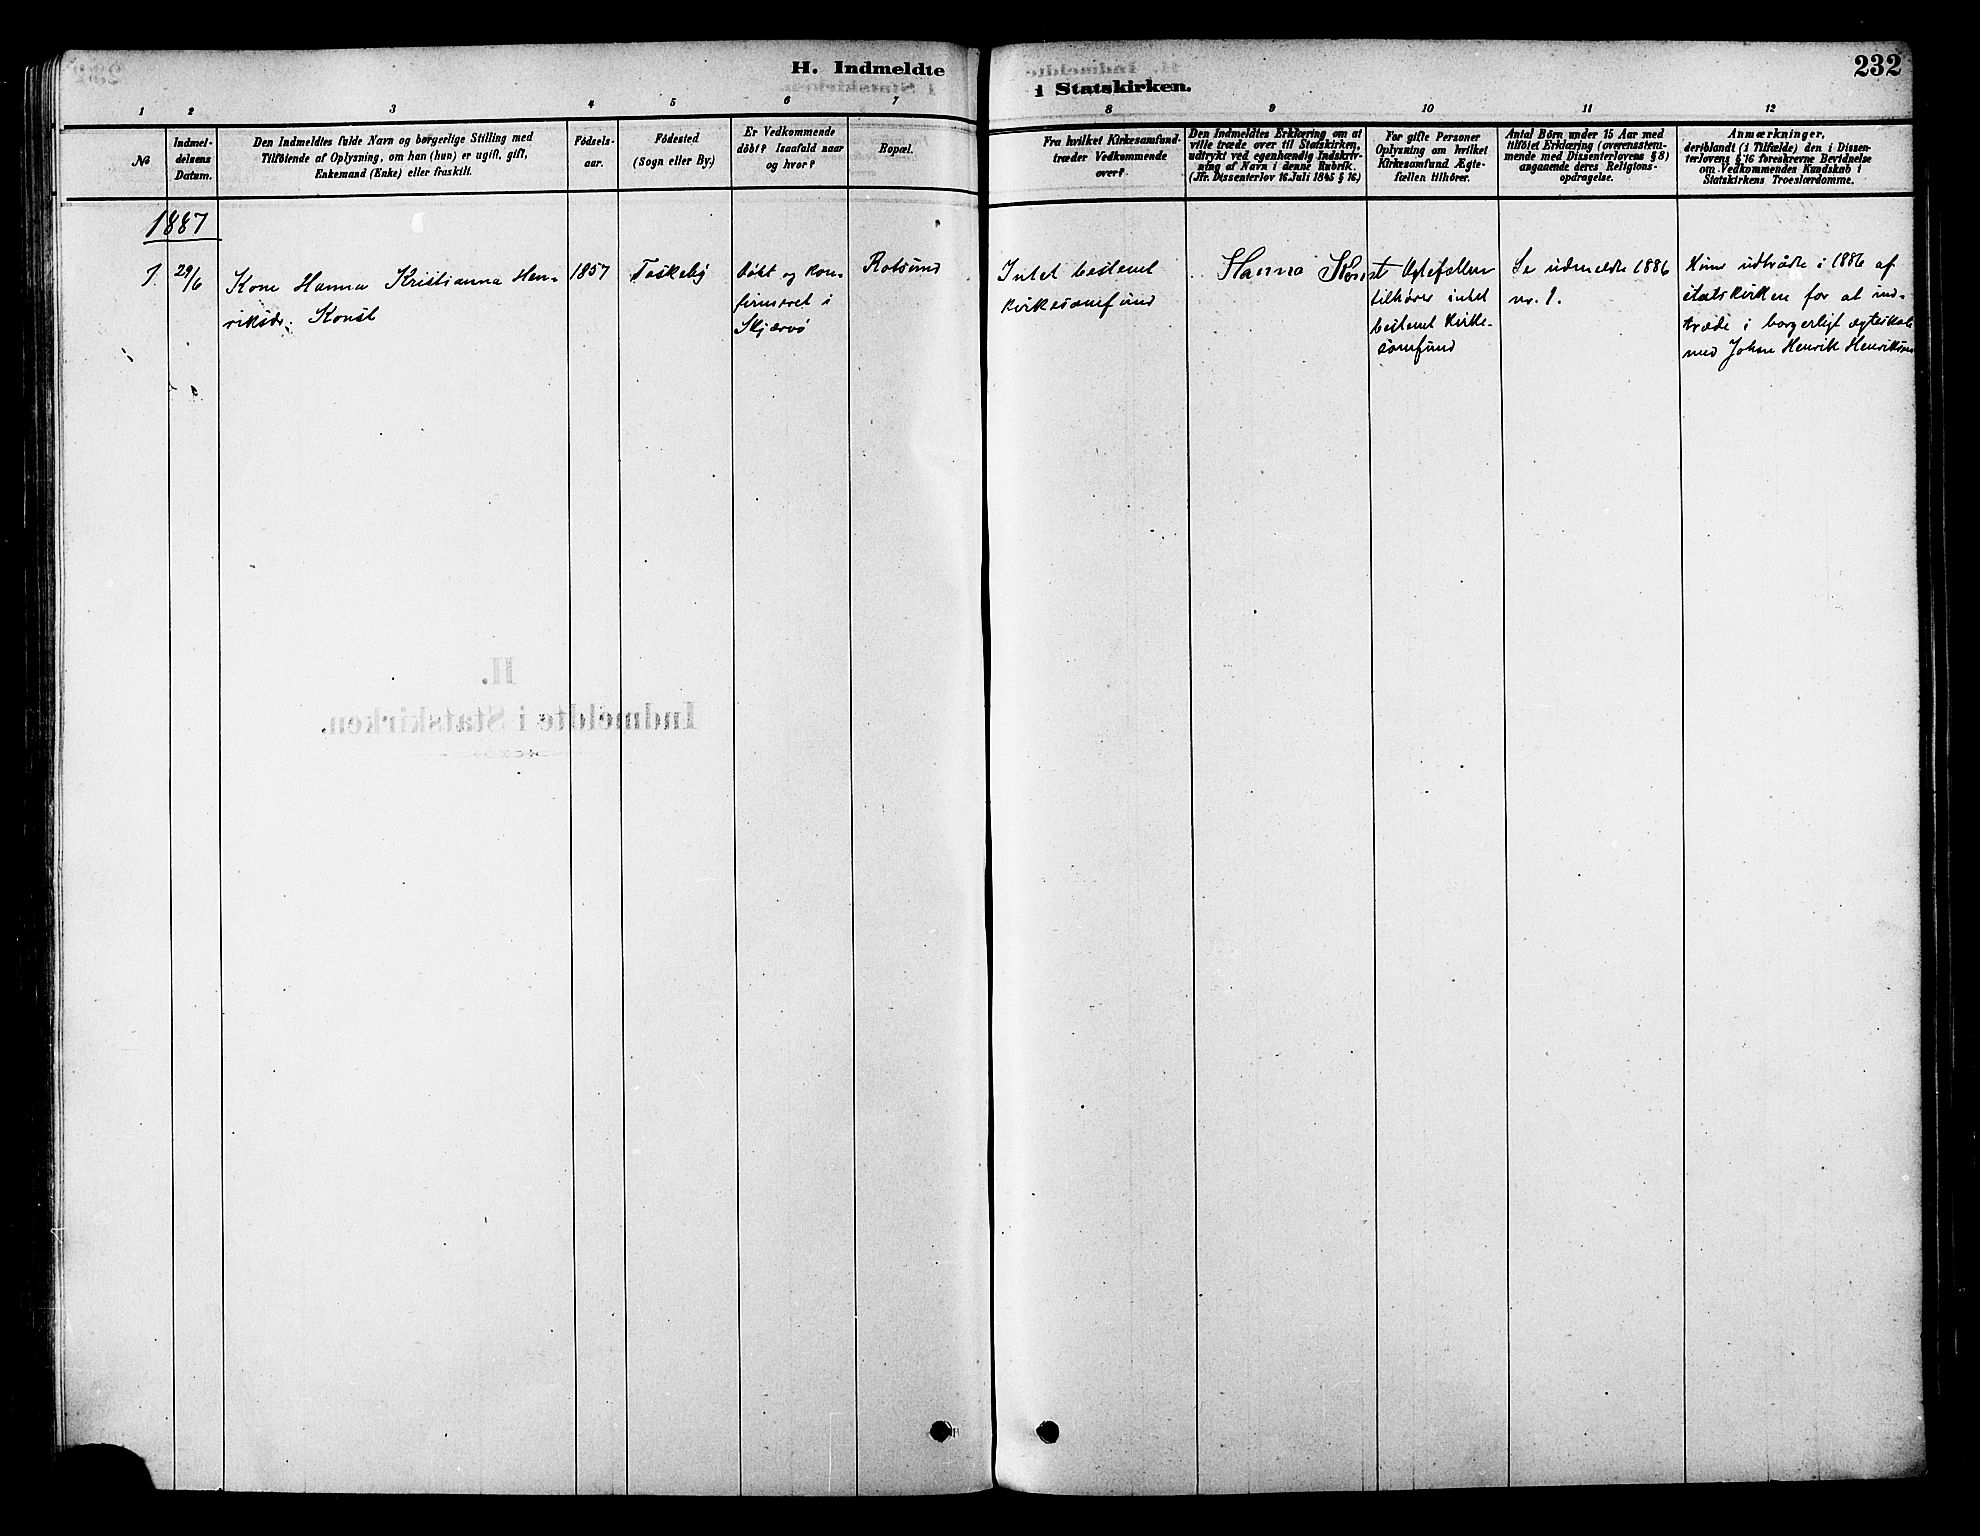 H. Indmeldte
i Statskirken.
232
1 2 3 4 5 6 7 8 9 10 11 12
No
Indmel-
delsens
Datum.
Den Indmeldtes fulde Navn og borgerlige Stilling med
Tilföiende af Oplysning, om han (hun) er ugift, gift,
Enkemand (Enke) eller fraskilt.
Födsels-
aar.
Födested
(Sogn eller By.)
Er Vedkommende
döbt? Isaafald naar
og hvor?
Bopæl.
Fra hvilket Kirkesamfund-
træder Vedkommende
over?
Den Indmeldtes Erklæring om at
ville træde over til Statskirken,
udtrykt ved egenhændig Indskriv-
ning af Navn i denne Rubrik.
(Jfr. Dissenterlov 16. Juli 1845 § 16)
For gifte Personer
Oplysning om hvilket
Kirkesamfund Ægte-
fællen tilhörer.
Antal Börn under 15 Aar med
tilföiet Erklæring (overensstem-
mende med Dissenterlovens § 8)
angaaende deres Religions-
opdragelse.
Anmærkninger,
deriblandt (i Tilfælde) den i Dissen-
terlovens § 16 foreskrevne Bevidnelse
om Vedkommendes Kundskab i
Statskirkens Troeslærdomme.
1887
1.
29/6
Kone Hanna Kristianna Hen-
riksdr. Konst
1857
Taskeby
Döbt og kon-
firmeret i
Skjærvö
Rotsund
Intet bestemt
kirkesamfund
Hanna Konst
Ægtefællen
tilhører intet
bestemt kirke-
samfund
Se udmeldte 1886
nr. 1.
Hun udtrådte i 1886 af
statskirken for at ind-
træde i borgerligt ægteskab
med Johan Henrik Henriksen
H.
Indmeldte i Statskirken.